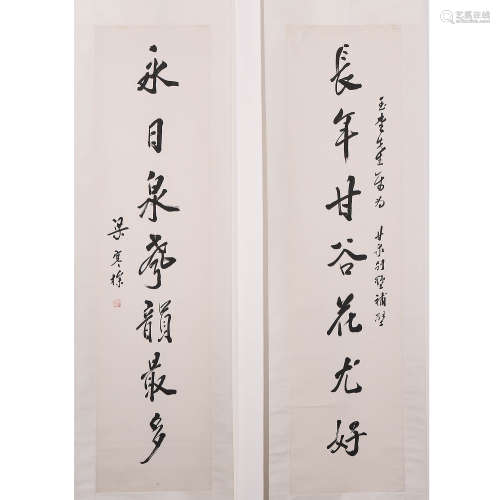 長年甘谷花尤好
先生屬為 甘泉
補壁
永日泉聲韻最多
梁寒操